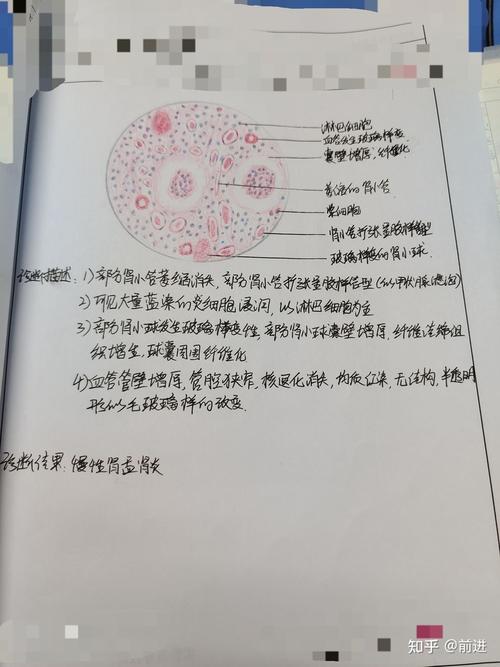 淋巴细胞
血管发生玻璃样变
囊壁增厚,纤维化
萎缩的肾小管
浆细胞
肾小管扩张呈胶样管型
玻璃样变的肾小球
诊断描述:1)部分肾小管萎缩消失,部分肾小管扩张呈胶样管型(似甲状腺滤泡)
2)可见大量蓝染的炎细胞浸润,以淋巴细胞为主
3)部分肾小球发生玻璃样变性,部分肾小球囊壁增厚,纤维结缔组
织增生,球囊周围纤维化
4)血管管壁增厚,管腔狭窄,核退化消失,均质红染,无结构,半透明
形似毛玻璃样的改变.
诊断结果:慢性肾盂肾炎
知乎 @前进